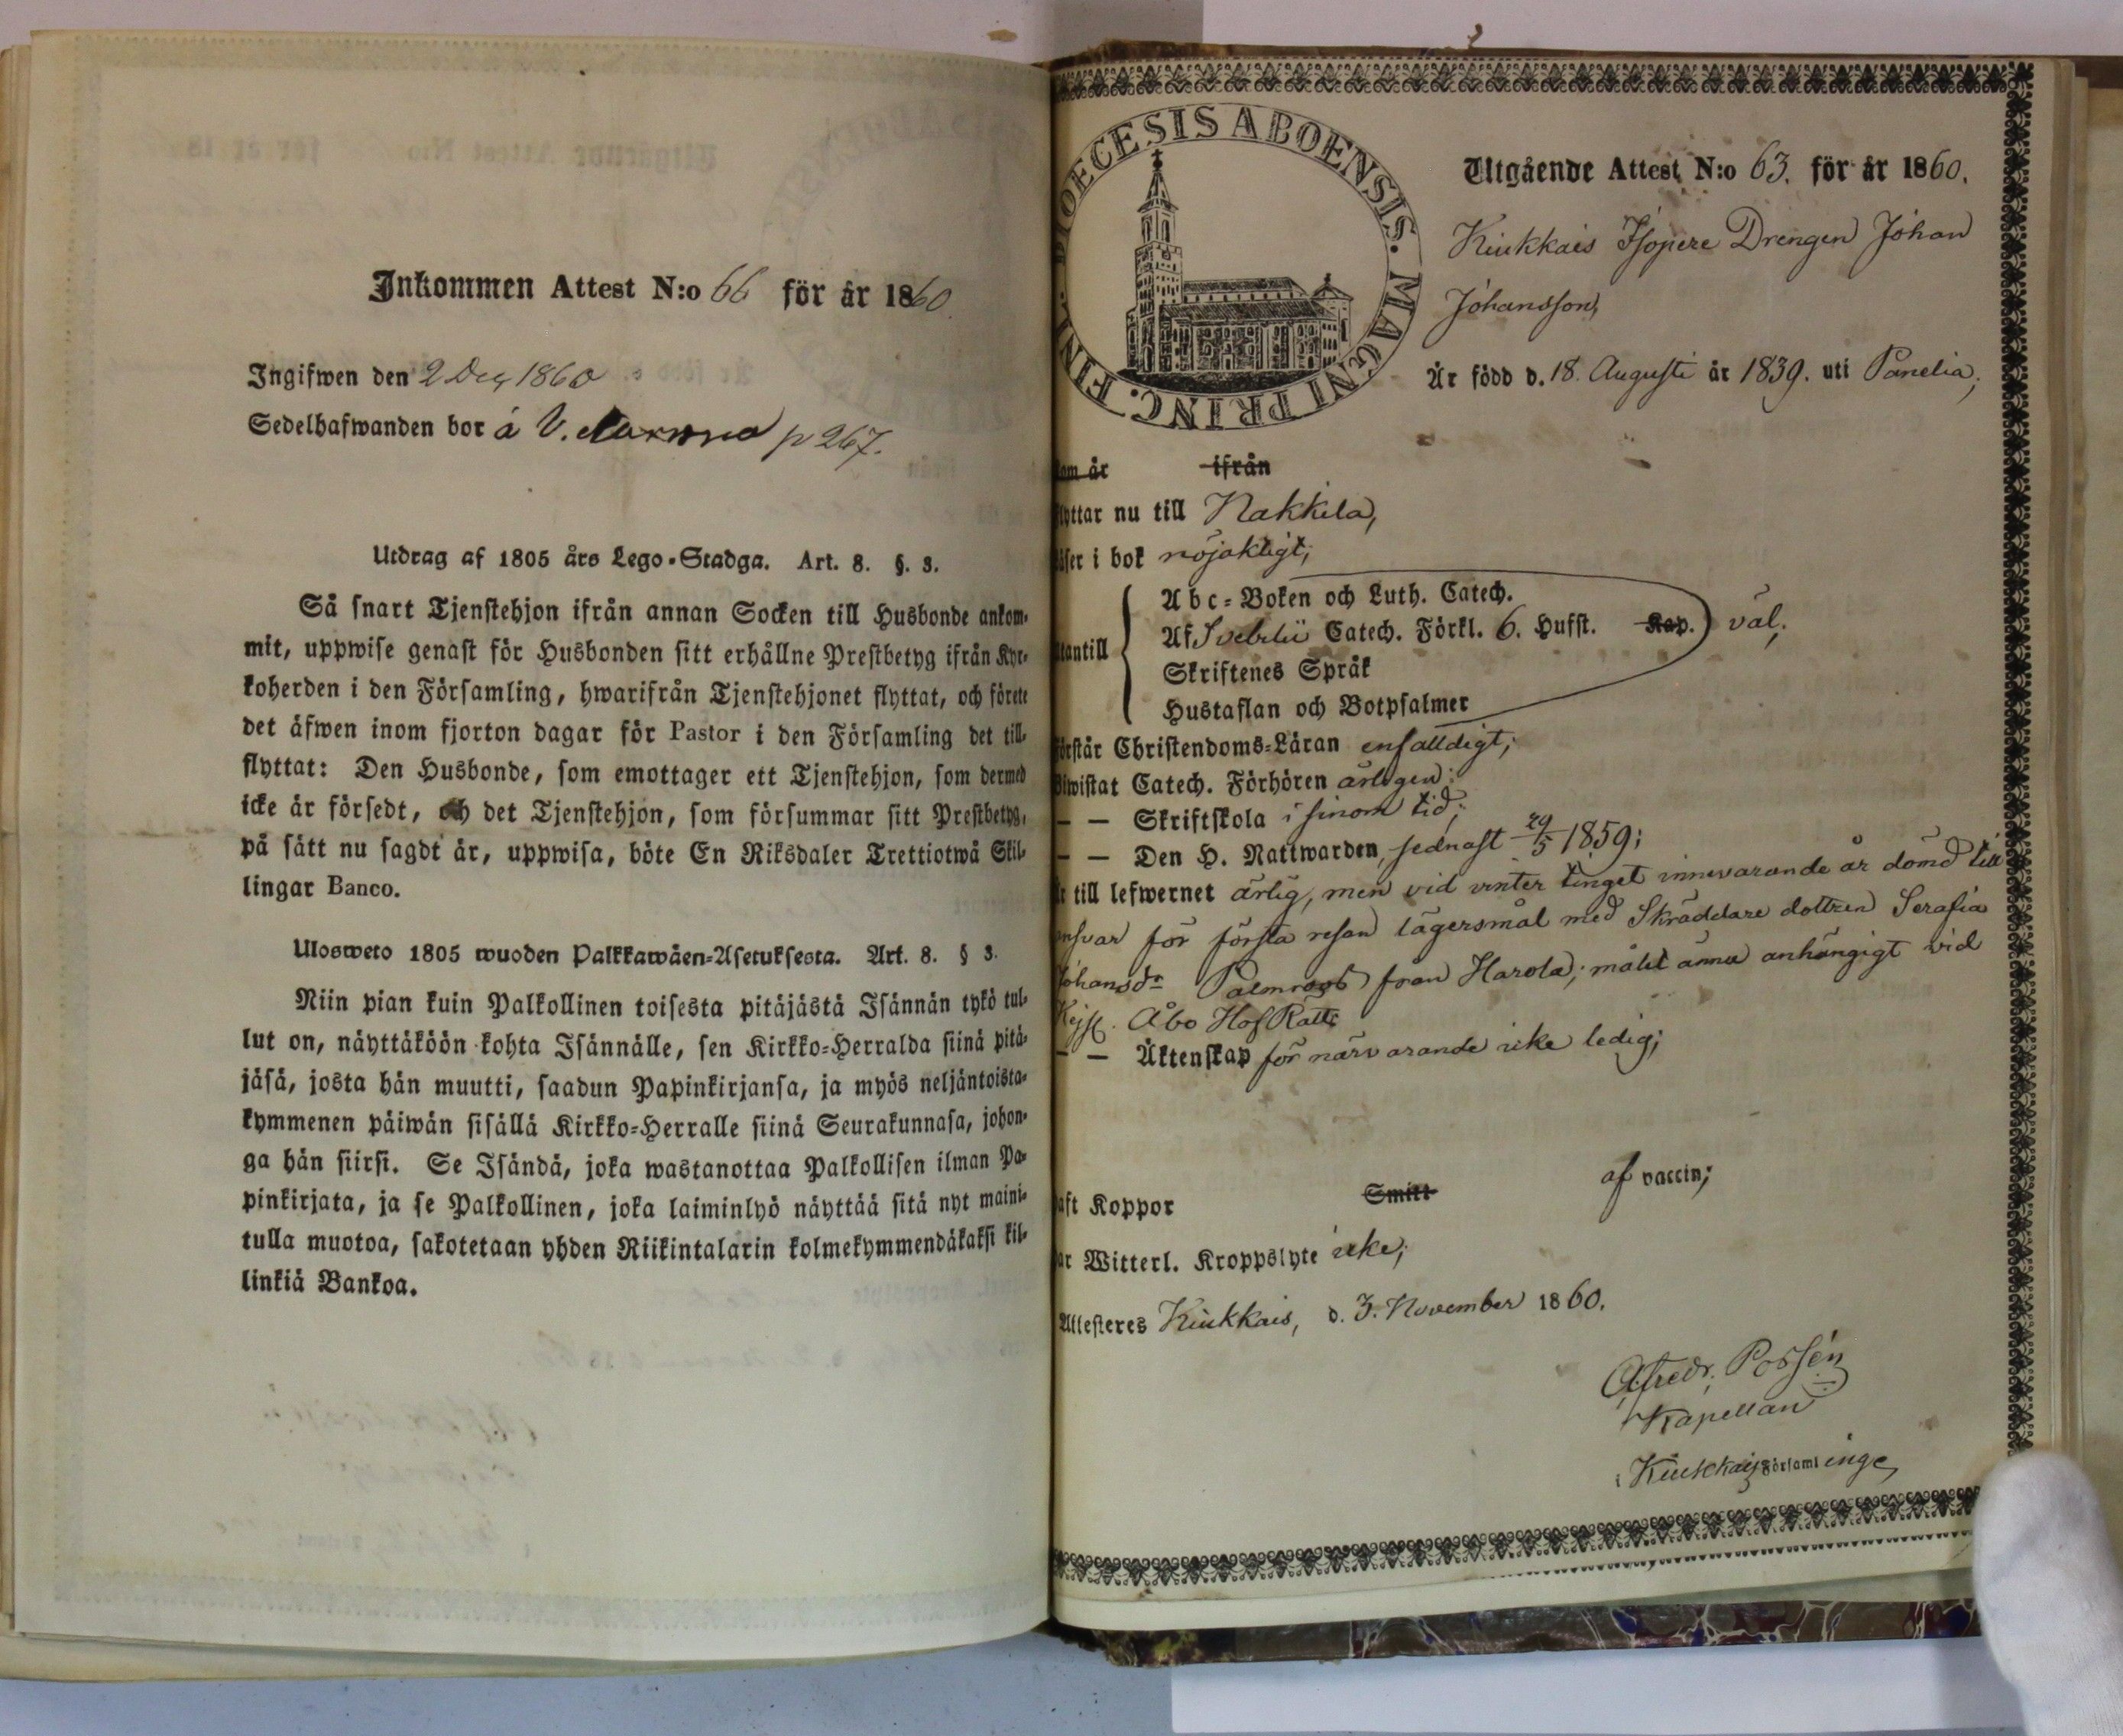 Inkommen Attest N:o 66 för år 1860.
Ingifwen den 2 Dec 1860
Sedelhafwanden bor á V. p 267.
Utdrag af 1805 års Lego-Stadga. Art. 8. §. 3.
Så snart Tjenstehjon ifrån annan Socken till Husbonde ankom-
mit, uppwise genast för Husbonden sitt erhållne Prestbetyg ifrån Kyr-
koherden i den Församling, hwarifrån Tjenstehjonet flyttat, och förete
det äfwen inom fjorton dagar för Pastor i den Församling det till-
flyttat: Den Husbonde, som emottager ett Tjenstehjon, som dermed
icke är försedt, och det Tjenstehjon, som försummar sitt Prestbetyg,
på sätt nu sagdt är, uppwisa, böte En Riksdaler Trettiotwå Skil-
lingar Banco.
Ulosweto 1805 wuoden Palkkawäen-Asetuksesta. Art. 8. § 3.
Niin pian kuin Palkollinen toisesta pitäjästä Isännän tykö tul-
lut on, näyttäköön kohta Isännälle, sen Kirkko-Herralda siinä pitä-
jäsä, josta hän muutti, saadun Papinkirjansa, ja myös neljäntoista-
kymmenen päiwän sisällä Kirkko-Herralle siinä Seurakunnasa, johon-
ga hän siirsi. Se Isändä, joka wastanottaa Palkollisen ilman Pa-
pinkirjata, ja se Palkollinen, joka laiminlyö näyttää sitä nyt maini-
tulla muotoa, sakotetaan yhden Riikintalarin kolmekymmendäkaksi kil-
linkiä Bankoa.
DIOECESIS ABOENSIS. MAGNI PRINC. FINL.
Utgående Attest N:o 63. för år 1860.
Kiukkais Isopere Drengen Johan
Johansson,
Är född d. 18. Augusti år 1839. uti Panelia,
som är ifrån
flyttar nu till Nakkila,
läser i bok nöjaktigt;
Abc-Boken och Luth. Catech.
Af Svebelii Catech. Förkl. 6. Hufst. Kap. väl;
utantill
Skriftenes Språk
Hustaflan och Botpsalmer
förstår Christendoms-Läran enfalldigt;
Biwistat Catech. Förhören årligen;
— — Skriftskola i sinom tid;
— — Den H. Nattwarden, sednast 29/5 1859;
Är till lefwernet ärlig, men vid vinter tinget innevarande år dömd till
ansvar för första resan lägersmål med Skräddare dottren Serafia
Johansdr från Harola; målet ännu anhängigt vid
Kejsl. Åbo Hof Rätt.
— — Äktenskap för närvarande icke ledig;
haft Koppor Smitt af vaccin;
har Witterl. Kroppslyte icke;
Attesteres Kiukkais, d. 3. November 1860.
Alfredr. Possén
Kapellan
i Kiukkais Församlinge